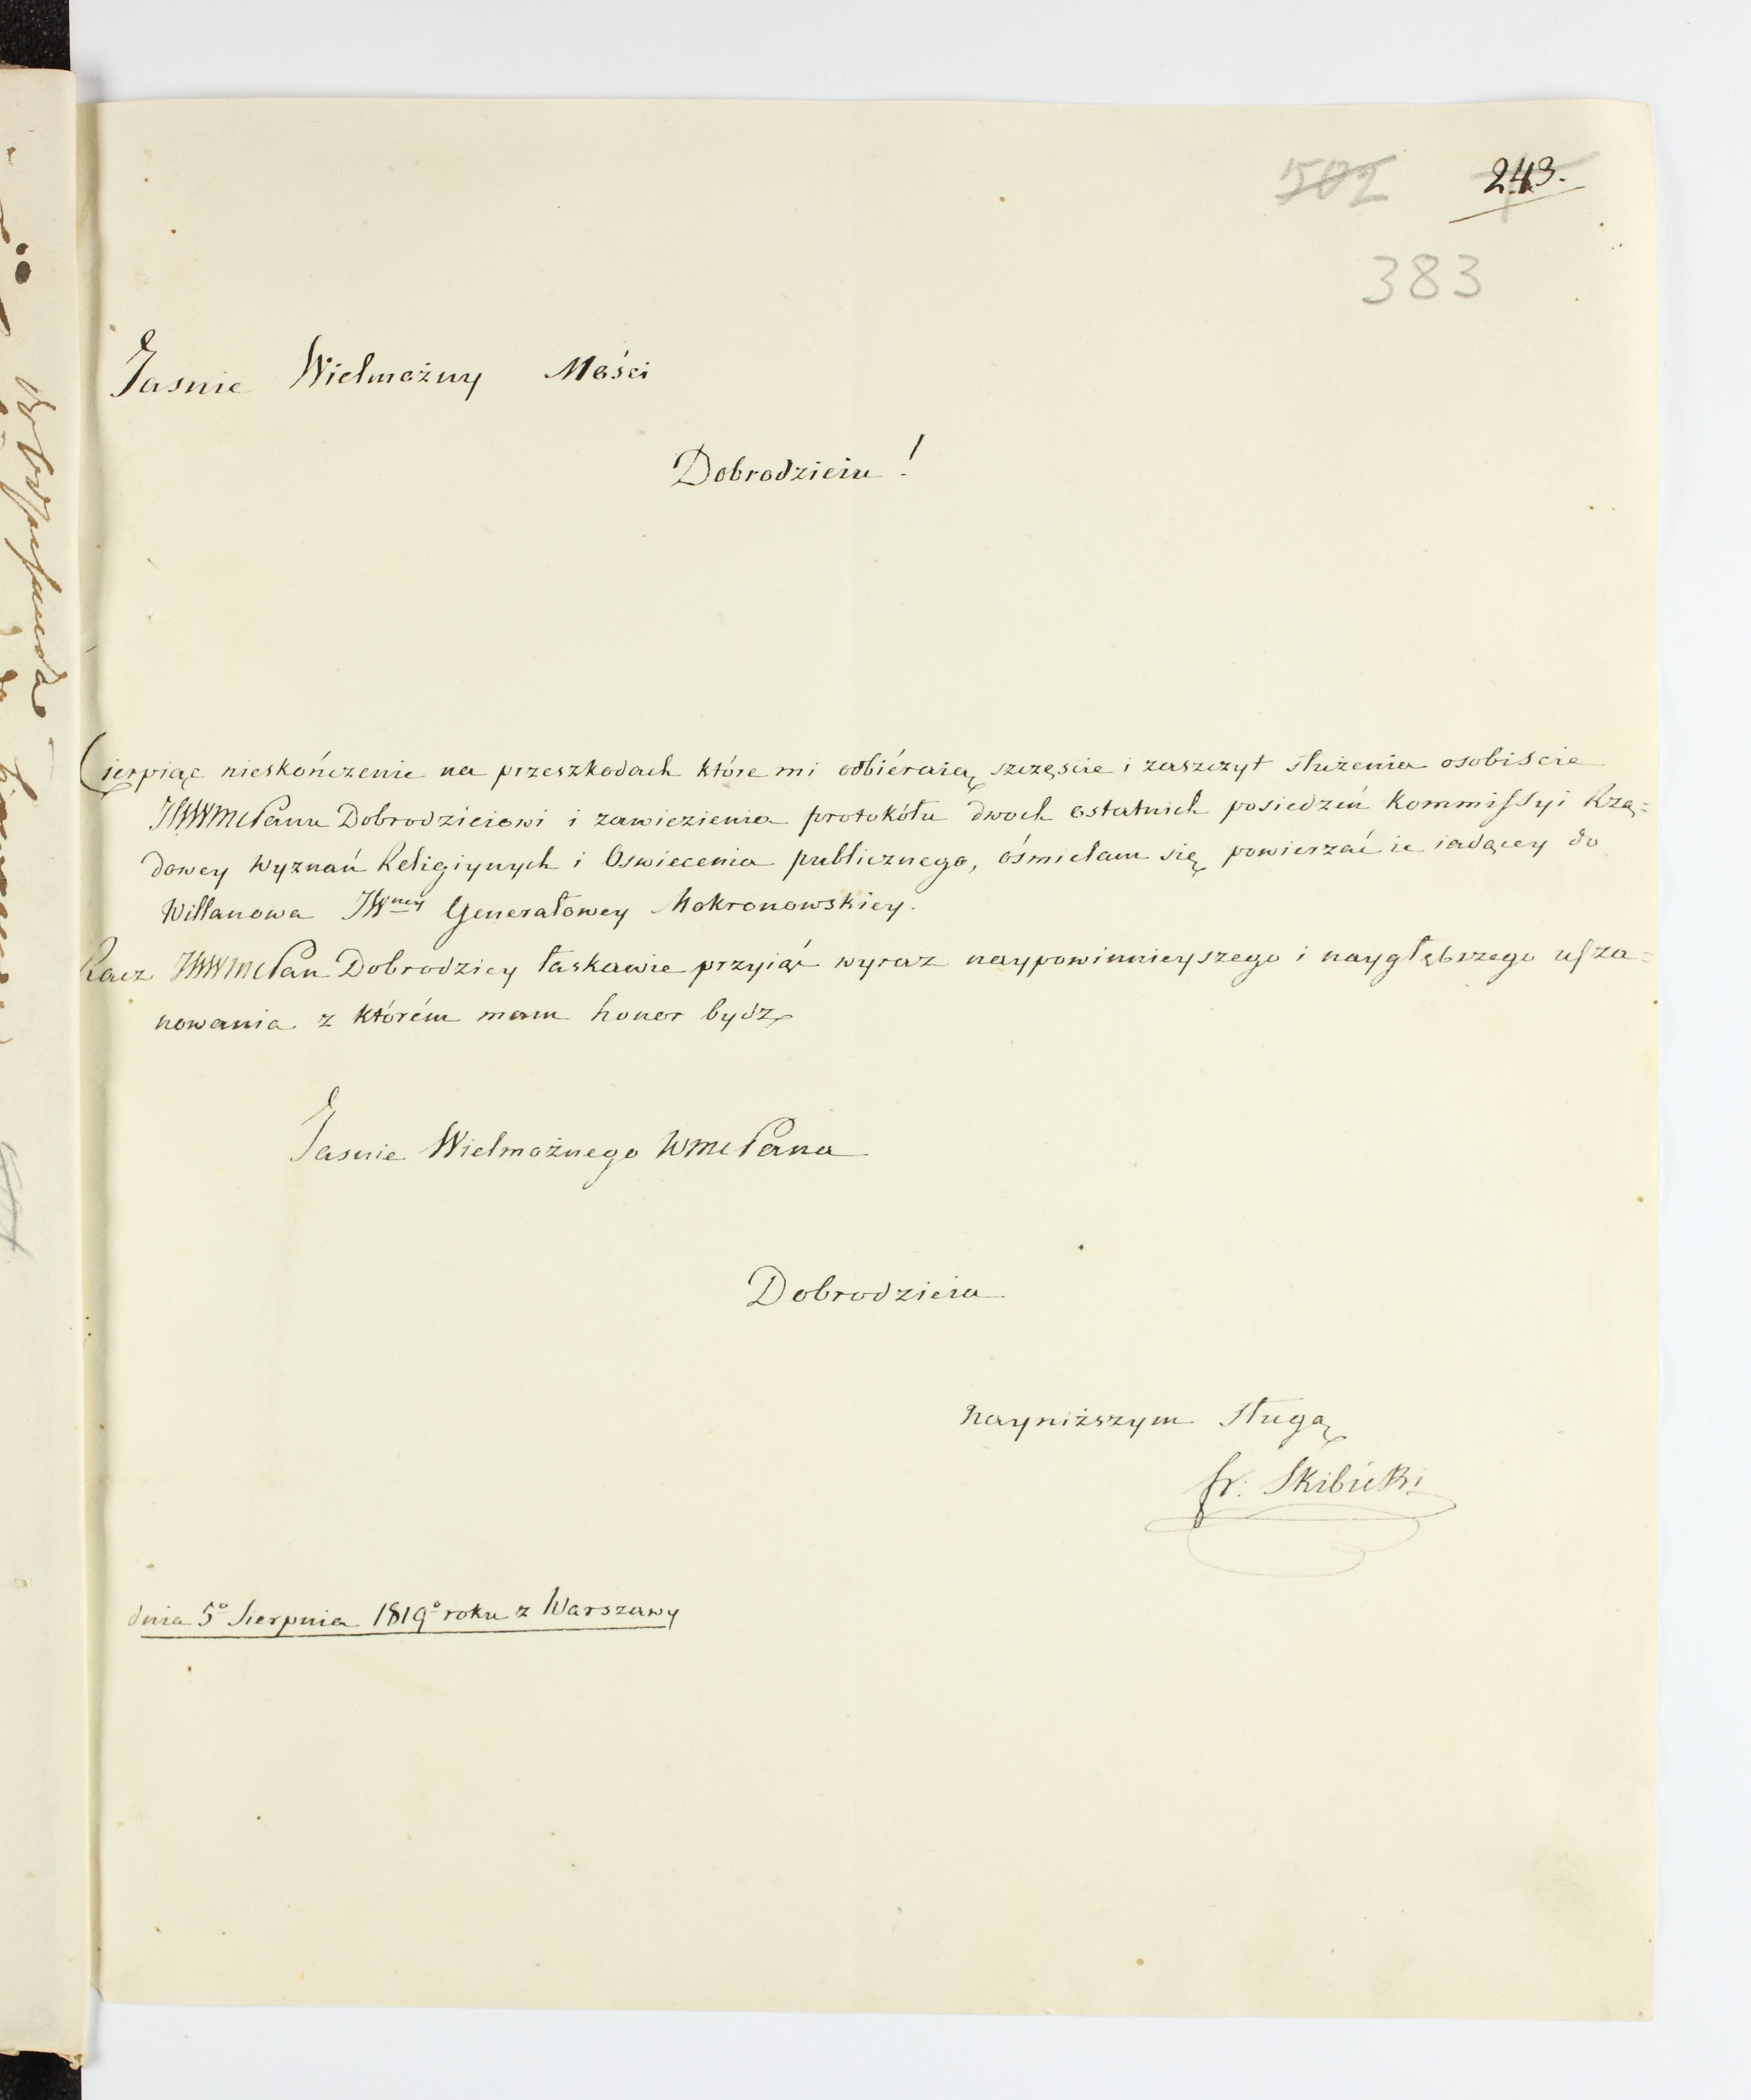 502 243.
383
Jasnie Wielmożny Mości
Dobrodzieiu!
Cierpiąc nieskończenie na przeszkodach które mi odbiéraią szczęscie i zaszczyt służenia osobiscie
JWWMcPanu Dobrodzieiowi i zawiezienia protokółu dwoch ostatnich posiedzeń Kommissyi Rzą=
dowey Wyznań Religiynych i Oswiecenia publicznego, ośmielam się powierzać ie iadącey do
Willanowa JWney Generałowey Mokronowskiey.
Racz JWWMcPan Dobrodziey łaskawie przyiąć wyraz naypowinnieyszego i naygłębszego usza=
nowania z którém mam honor bydz
Jasnie Wielmożnego WMcPana
Dobrodzieia
nayniższym sługą
Fr. Skibicki
dnia 5o Sierpnia 1819o roku z Warszawy